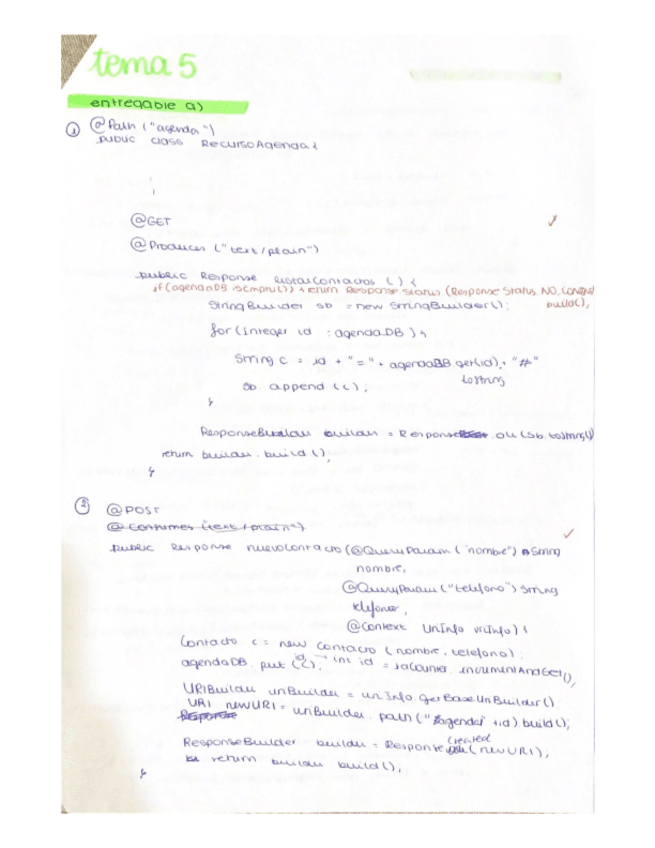 tema 5
entregable a)
① @Path ("agenda")
public class RecursoAgenda {
@GET
@Produces ("text/plain")
public Response listarContactos () {
if (agendaDB.isEmpty()) return Response.status (Response.Status.NO_CONTENT)
build();
StringBuilder sb = new StringBuilder();
for (Integer id : agendaDB) {
String c = id + "=" + agendaDB.get(id). + "#"
toString
sb.append (c);
}
ResponseBuilder builder = Response. ok (sb.toString())
return builder.build ();
}
② @POST
@Consumes (text/plain")
public Response nuevoContacto (@QueryParam ("nombre") String
nombre,
@QueryParam ("telefono") String
telefono,
@Context UriInfo uriInfo) {
Contacto c = new Contacto (nombre, telefono);
agendaDB.put (c); id → int id = idCounter.incrementAndGet();
URIBuilder uriBuilder = uriInfo.getBaseUriBuilder().
URI newURI = uriBuilder.path ("agenda/" + id).build();
Response
ResponseBuilder builder = Response. created (newURI);
return builder.build();
}